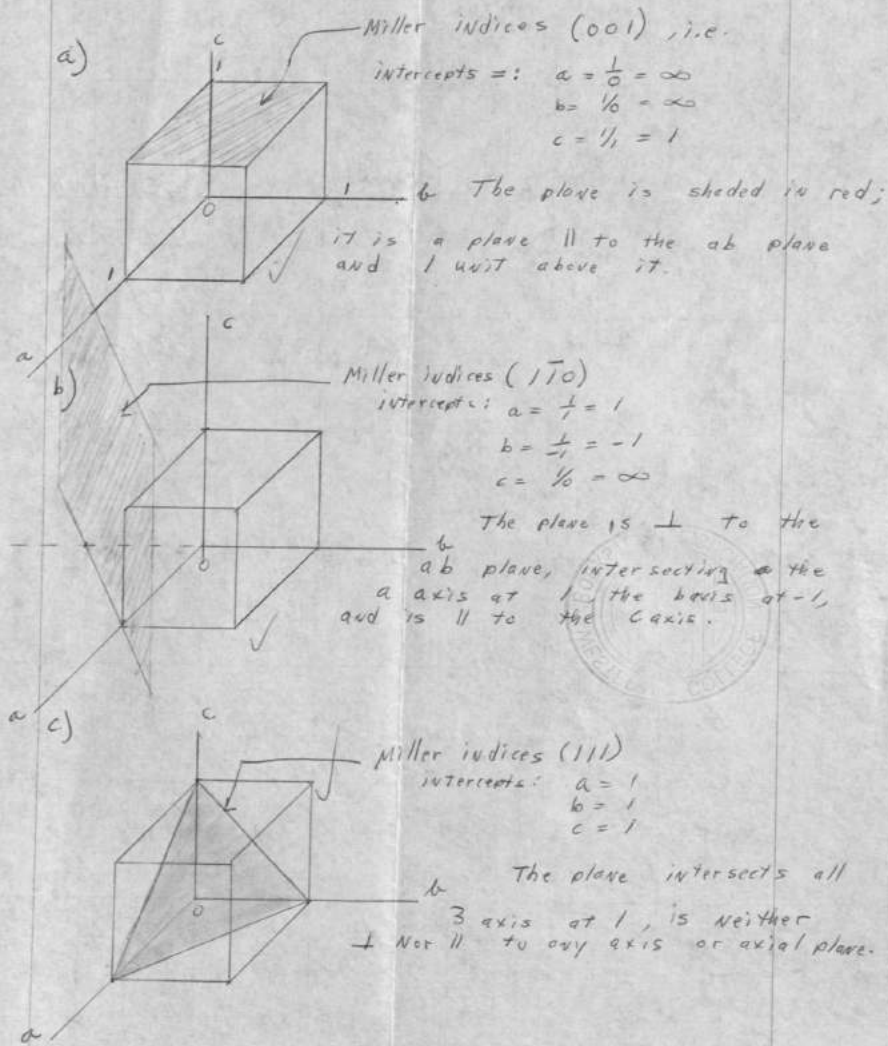 a)
c
1
Miller indices (001), i.e.
intercepts =: a = 1/0 = ∞
b = 1/0 = ∞
c = 1/1 = 1
1
b
0
The plane is shaded in red;
it is a plane || to the ab plane
and 1 unit above it.
1
a
c
b)
Miller indices (11̄0)
intercepts: a = 1/1 = 1
b = 1/-1 = -1
c = 1/0 = ∞
The plane is ⊥ to the
b
0
ab plane, intersecting the
a axis at 1, the b axis at -1,
and is || to the c axis.
a
c)
c
Miller indices (111)
intercepts: a = 1
b = 1
c = 1
The plane intersects all
b
0
3 axis at 1, is neither
⊥ nor || to any axis or axial plane.
a